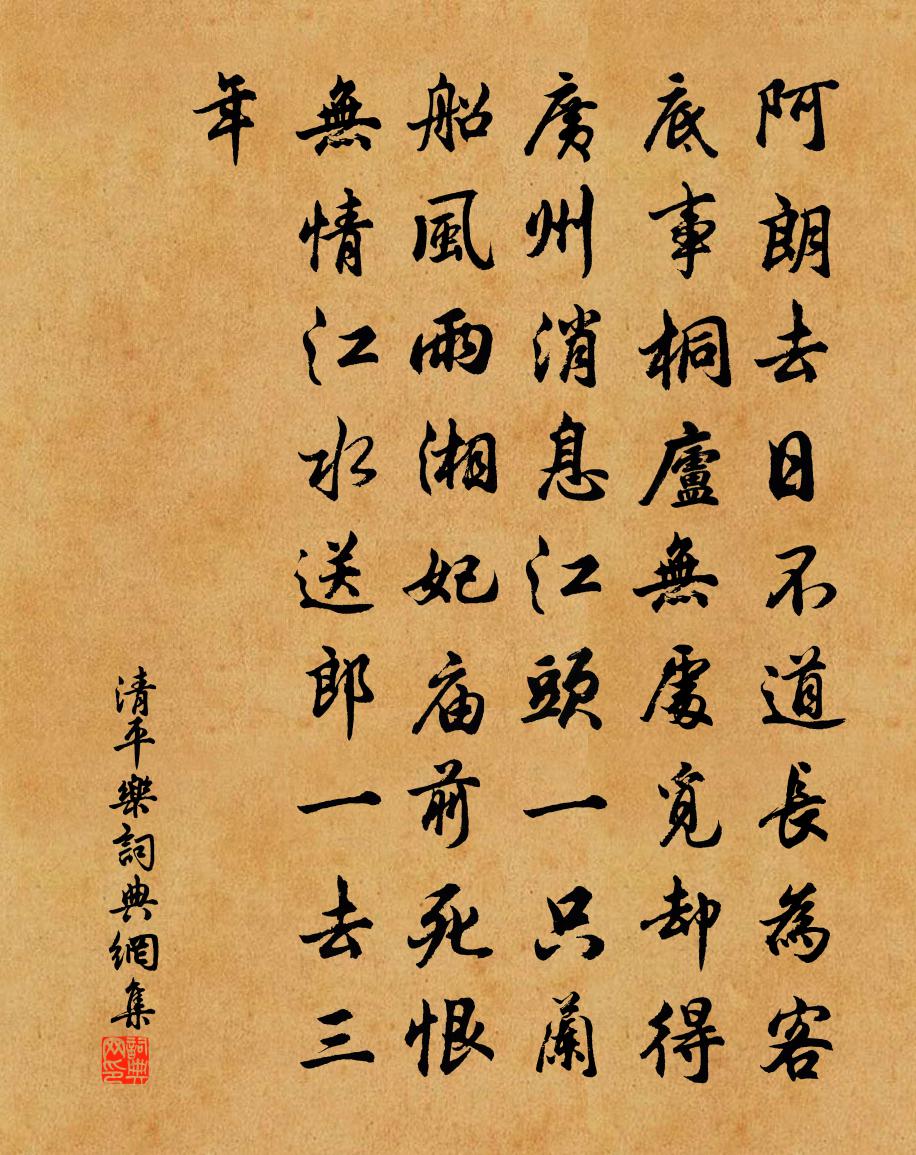 阿朗去日不道長為客
底事桐廬無處覓却得
廣州消息江頭一只蘭
船風雨湘妃庙前死恨
無情江水送郎一去三
年
清平樂詞典網集
詞典網印